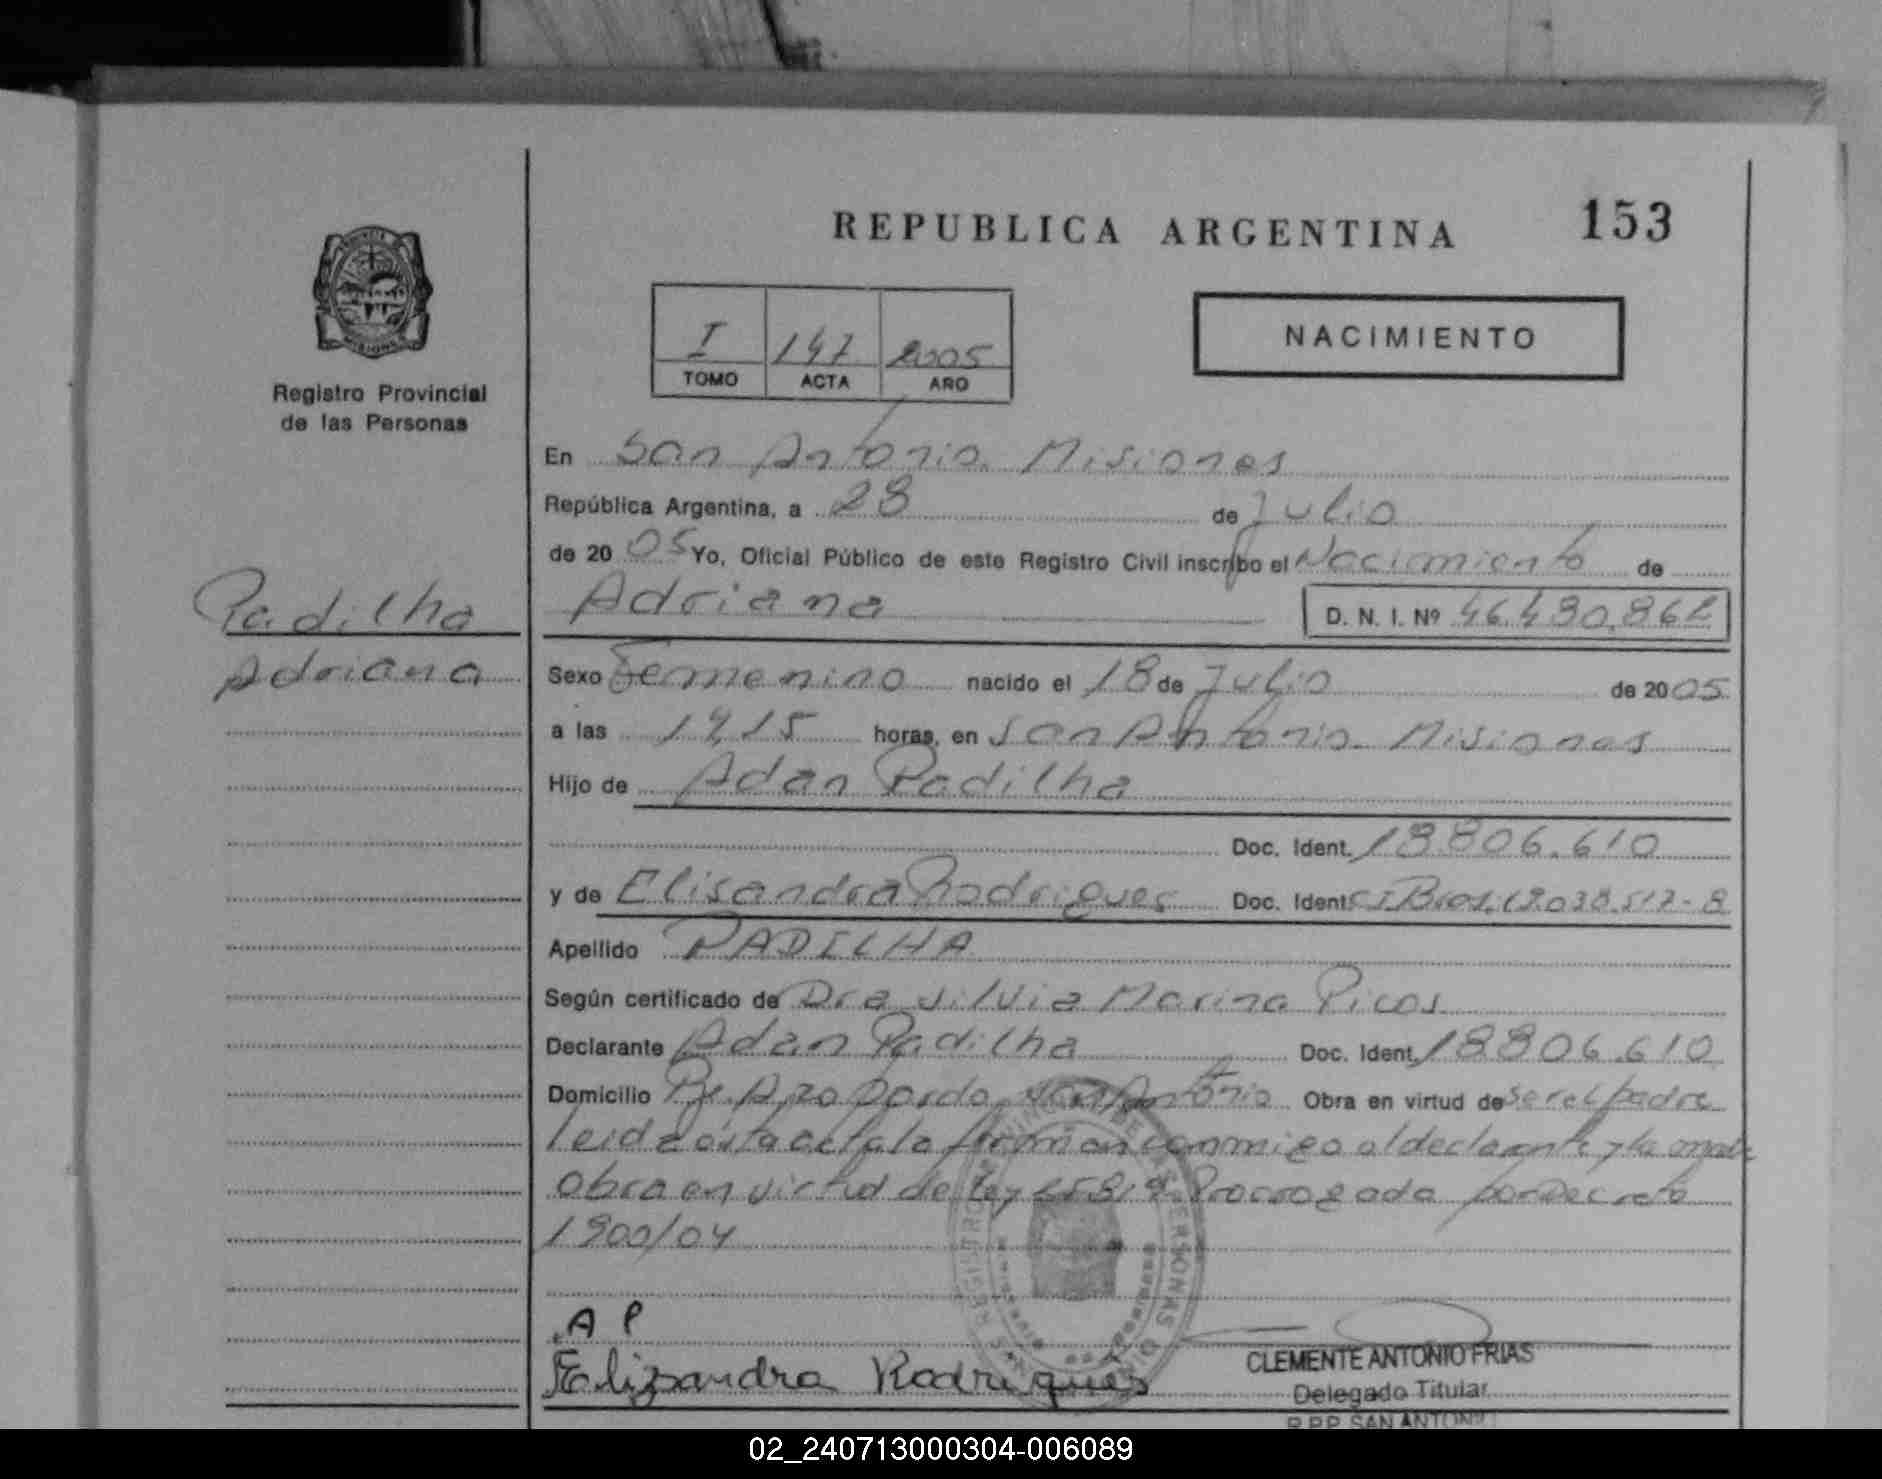 REPUBLICA ARGENTINA
153
I 147 2005
TOMO ACTA AÑO
NACIMIENTO
Registro Provincial
de las Personas
En San Antonio Misiones
República Argentina, a 28 de Julio
de 2005 Yo, Oficial Público de este Registro Civil inscribo el Nacimiento de
Padilha
Adriana
Adriana D. N. I. Nº 46.430.862
Sexo Femenino nacido el 18 de Julio de 2005
a las 19,15 horas, en San Antonio Misiones
Hijo de Adan Padilha
Doc. Ident. 18806.610
y de Elisandra Rodrigues Doc. Ident. C I Bras.
Apellido PADILHA
Según certificado de Dra Silvia Marina Picos
Declarante Adan Padilha Doc. Ident. 18806.610
Domicilio San Antonio Obra en virtud de ser el padre
leida esta acta la firman conmigo el declarante y la madre
Obra en virtud de Ley Prorrogada por Decreto
1900/04
A P
Elizandra Rodrigues
CLEMENTE ANTONIO FRIAS
Delegado Titular
R.P.P. SAN ANTONIO
02_240713000304-006089